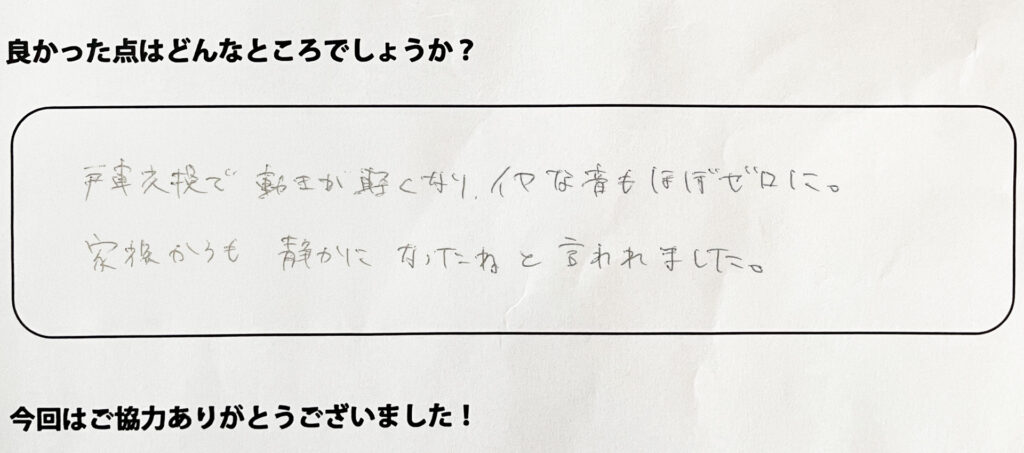 良かった点はどんなところでしょうか？
戸車交換で動きが軽くなり、イヤな音もほぼゼロに。
家族からも静かになったねと言われました。
今回はご協力ありがとうございました！